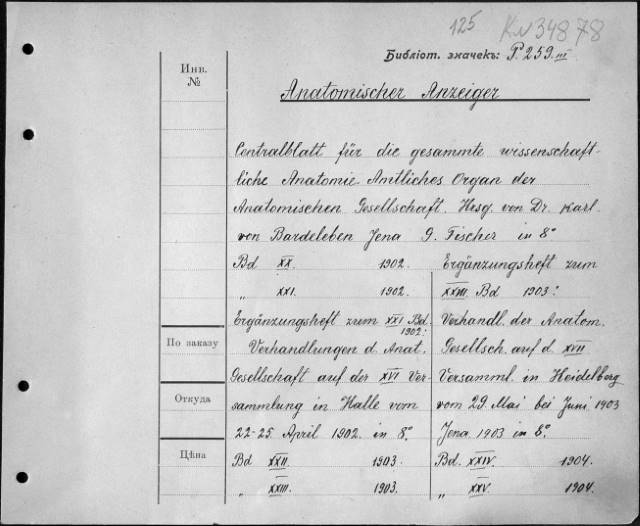 125 KN 34878
Библіот. значекъ: P. 259. III
Инв.
№
Anatomischer Anzeiger
Centralblatt für die gesammte wissenschaft-
liche Anatomie. Amtliches Organ der
Anatomischen Gesellschaft. Hrsg. von Dr. Karl
von Bardeleben Jena G. Fischer in 8°
Bd XX. 1902.
„ XXI. 1902.
Ergänzungsheft zum XXI Bd.
1902:
Verhandlungen d. Anat.
Gesellschaft auf der XVI Ver-
sammlung in Halle vom
22-25. April 1902. in 8°.
Bd XXII. 1903.
„ XXIII. 1903.
Ergänzungsheft zum
XXIII Bd 1903:
Verhandl. der Anatom.
Gesellsch. auf d. XVII
Versamml. in Heidelberg
vom 29. Mai bei Juni 1903
Jena 1903 in 8°.
Bd. XXIV. 1904.
„ XXV. 1904.
По заказу
Откуда
Цѣна